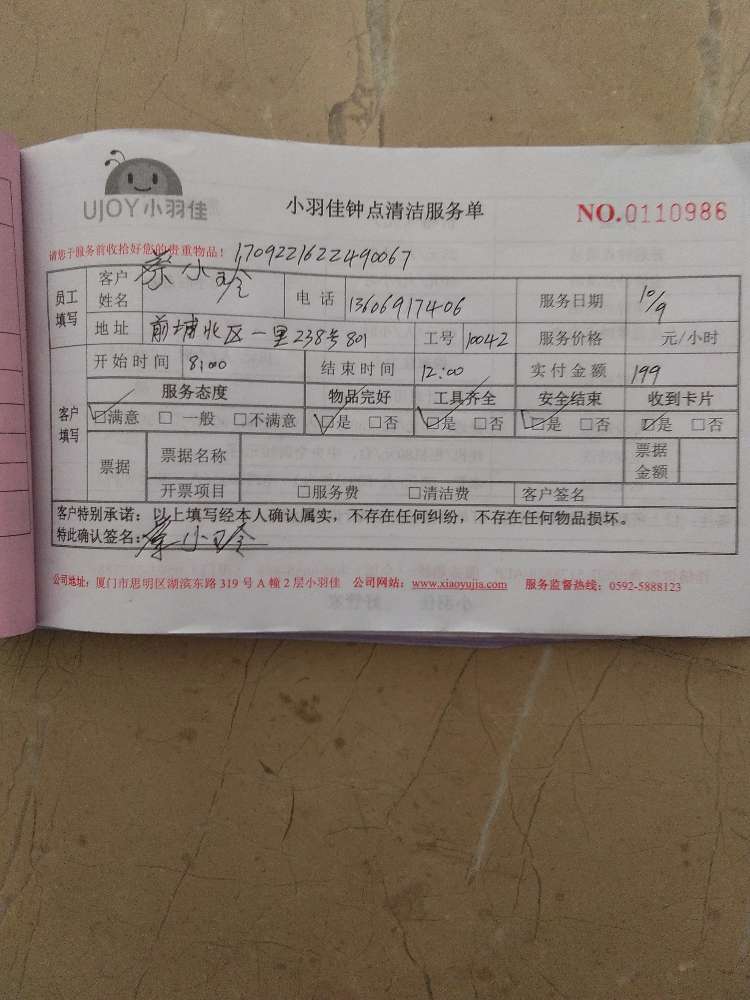 UJOY小羽佳
小羽佳钟点清洁服务单
NO.0110986
请您于服务前收拾好您的贵重物品！ 1709221622490067
员工填写 客户姓名 蔡小玲 电话 13606917406 服务日期 10/9
地址 前埔北区一里238号801 工号 10042 服务价格 元/小时
开始时间 8:00 结束时间 12:00 实付金额 199
客户填写 服务态度 物品完好 工具齐全 安全结束 收到卡片
☑满意 □一般 □不满意 ☑是 □否 ☑是 □否 ☑是 □否 ☑是 □否
票据 票据名称 票据金额
开票项目 □服务费 □清洁费 客户签名
客户特别承诺：以上填写经本人确认属实，不存在任何纠纷，不存在任何物品损坏。
特此确认签名：蔡小玲
公司地址：厦门市思明区湖滨东路 319 号 A 幢 2 层小羽佳 公司网站：www.xiaoyujia.com 服务监督热线：0592-5888123